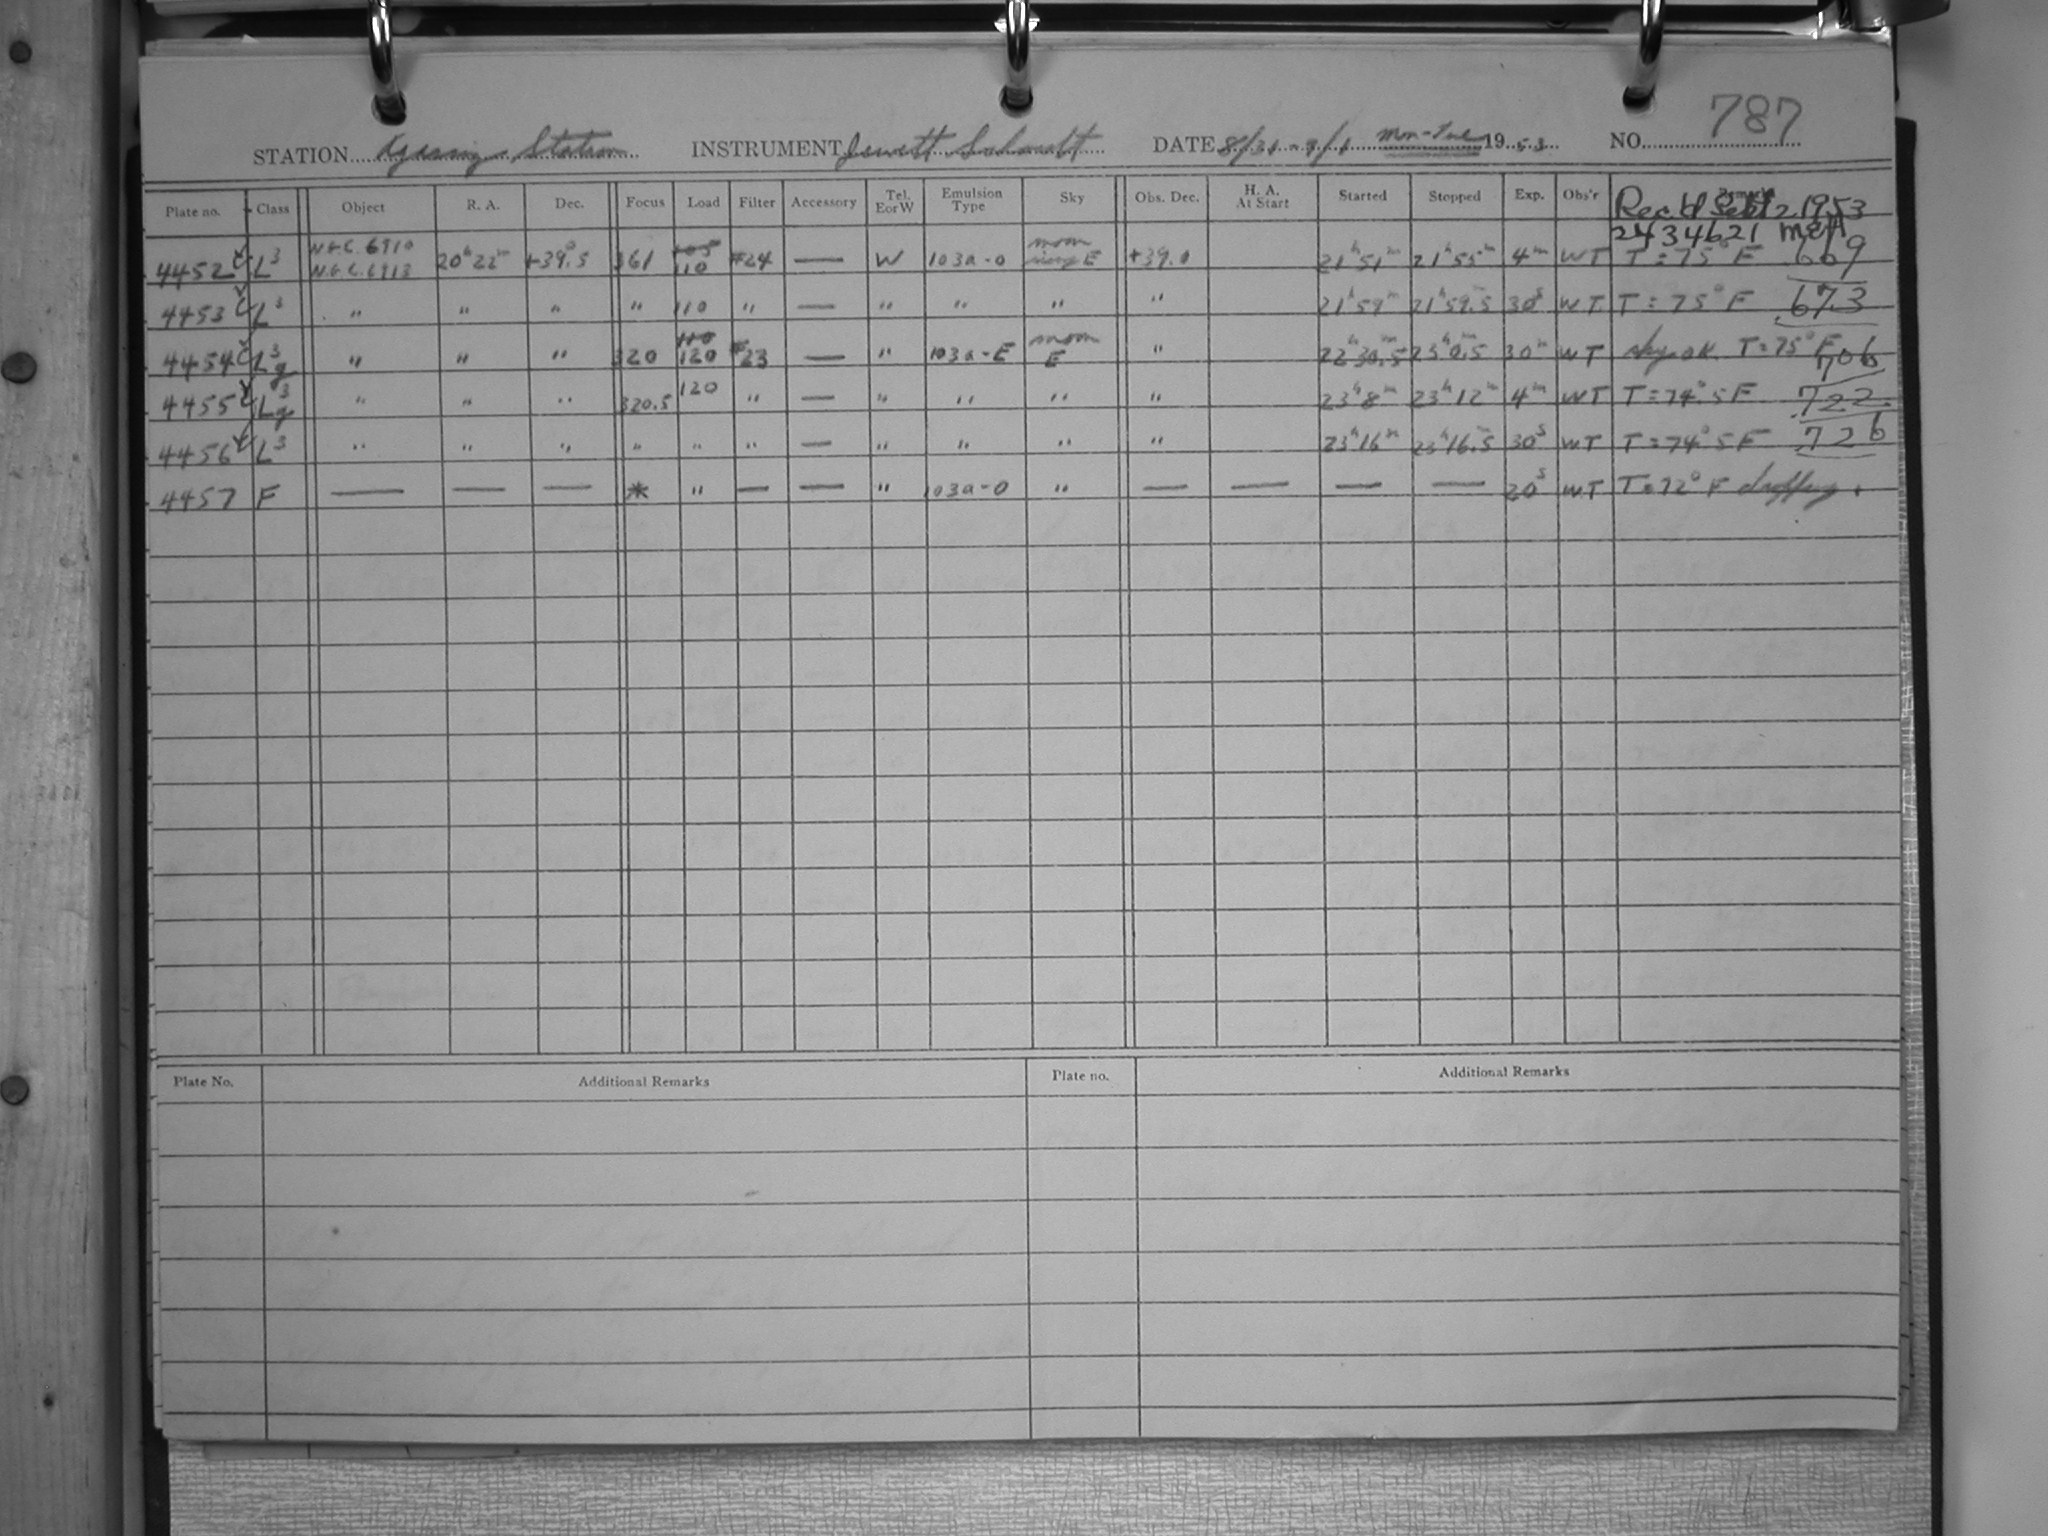 787
STATION Agassiz Station INSTRUMENT Jewett Schmidt DATE 8/31-9/1 Mon-Tue 1953 NO.
Plate no. Class Object R. A. Dec. Focus Load Filter Accessory Tel. EorW Emulsion Type Sky Obs. Dec. H. A. At Start Started Stopped Exp. Obs'r Remarks
Rec'd Sept 2 1953
2434621 MeH
4452 L3 N.G.C. 6910 N.G.C. 6913 20h22m +39°.5 361 105 110 #24 — W 103a-O moon rising E +39.0 21h51m 21h55m 4m WT T=75°F .669
4453 L3 " " " " 110 " — " " " " 21h59m 21h59.5 30s WT T=75°F .673
4454 L3g " " " 320 110 120 #23 — " 103a-E moon E " 22h30.5m 23h0.5m 30m WT sky ok. T=75°F .706
4455 L3g " " " 320.5 120 " — " " " " 23h8m 23h12m 4m WT T=74°.5F .722
4456 L3 " " " " " " — " " " " 23h16m 23h16.5m 30s WT T=74°.5F .726
4457 F — — — * " — — " 103a-O " — — — — 20s WT T=72°F
Plate No. Additional Remarks Plate no. Additional Remarks